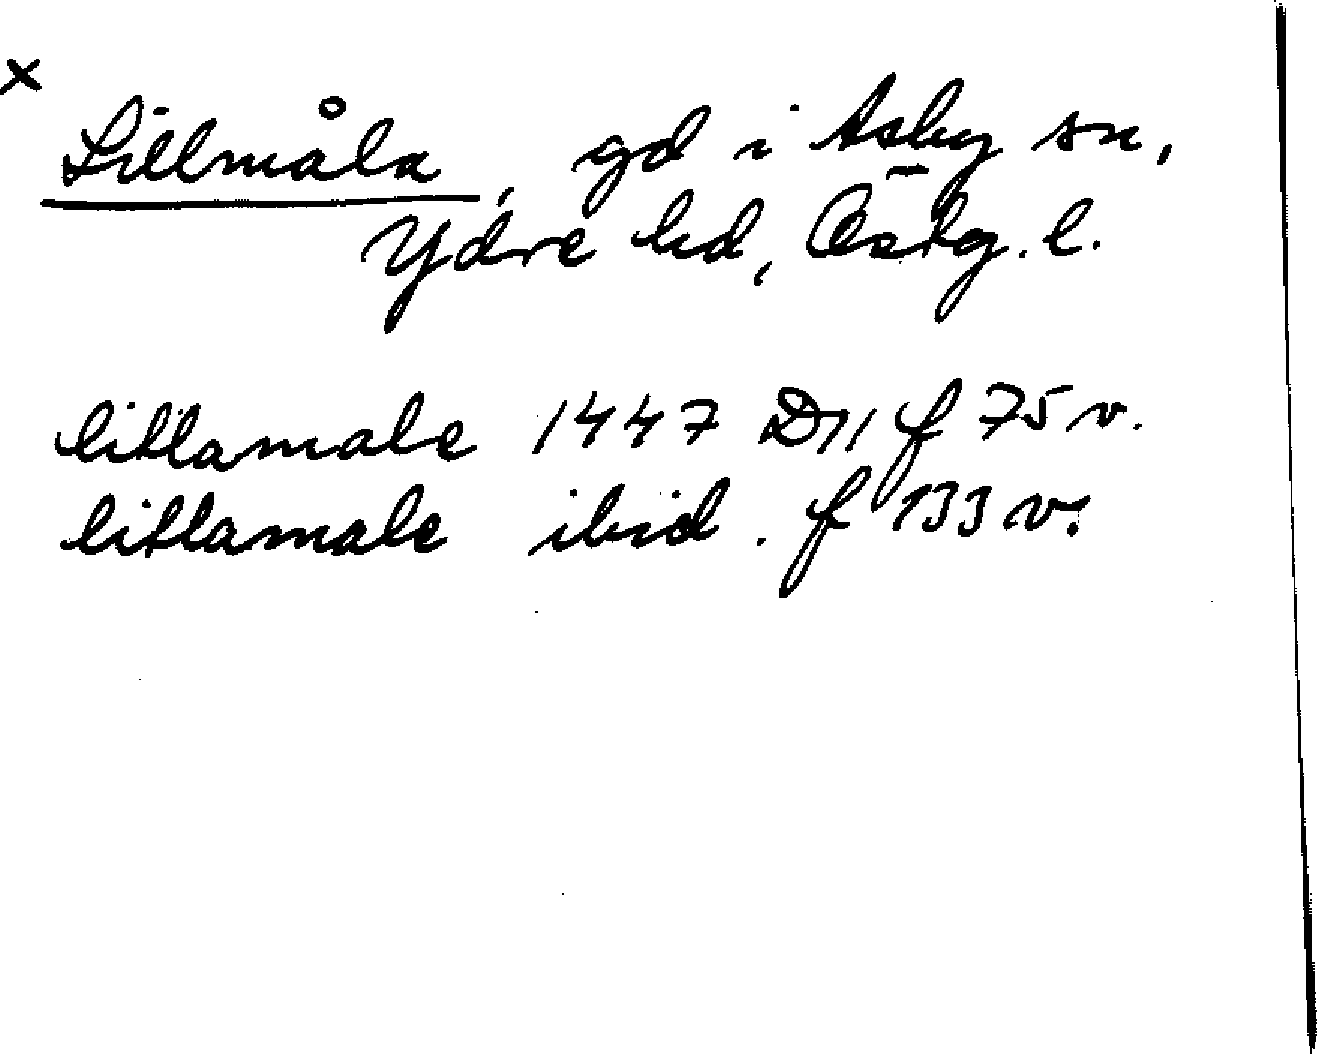 x
Lillmåla, gd i Asby sn,
Ydre hd, Östg. l.
litlamale 1447 D11 f 75 v.
litlamale ibid. f 133 v.